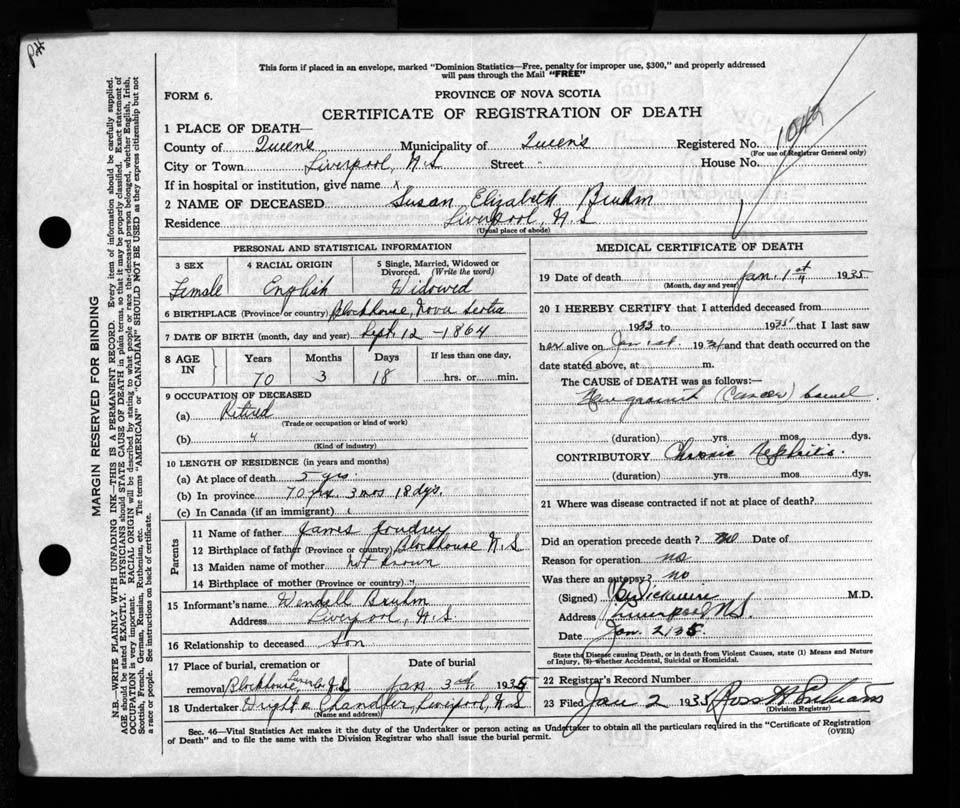 This form if placed in an envelope, marked "Dominion Statistics—Free, penalty for improper use, $300," and properly addressed
will pass through the Mail "FREE"
FORM 6.
PROVINCE OF NOVA SCOTIA
CERTIFICATE OF REGISTRATION OF DEATH
1 PLACE OF DEATH—
County of Queen's Municipality of Queen's Registered No.
(For use of Registrar General only)
City or Town Liverpool, N.S Street - House No.
If in hospital or institution, give name x
2 NAME OF DECEASED Susan Elizabeth Bruhm
Residence Liverpool, N.S
(Usual place of abode)
PERSONAL AND STATISTICAL INFORMATION
3 SEX 4 RACIAL ORIGIN 5 Single, Married, Widowed or Divorced. (Write the word)
Female English Widowed
6 BIRTHPLACE (Province or country) Blockhouse, Nova Scotia
7 DATE OF BIRTH (month, day and year) Sept. 12 - 1864
8 AGE IN Years Months Days If less than one day,
70 3 18 hrs. or min.
9 OCCUPATION OF DECEASED
(a) Retired
(Trade or occupation or kind of work)
(b) "
(Kind of industry)
10 LENGTH OF RESIDENCE (in years and months)
(a) At place of death 3 yrs
(b) In province 70 yrs. 3 mos 18 dys.
(c) In Canada (if an immigrant)
Parents
11 Name of father James Joudrey
12 Birthplace of father (Province or country) Blockhouse N.S
13 Maiden name of mother not known
14 Birthplace of mother (Province or country) "
15 Informant's name Wendall Bruhm
Address Liverpool, N.S.
16 Relationship to deceased Son
17 Place of burial, cremation or Date of burial
removal Blockhouse, Lunenb. Co N.S. Jan. 3rd, 1935
18 Undertaker Wright & Chandler, Liverpool, N.S
(Name and address)
MEDICAL CERTIFICATE OF DEATH
19 Date of death Jan. 1st 1935
(Month, day and year)
20 I HEREBY CERTIFY that I attended deceased from
1935 to 1935 that I last saw
her alive on Jan 1st. 193 and that death occurred on the
date stated above, at m.
The CAUSE of DEATH was as follows:—
New growth (Cancer) bowel
(duration) yrs. mos. dys.
CONTRIBUTORY Chronic Nephritis.
(duration) yrs. mos. dys.
21 Where was disease contracted if not at place of death?
Did an operation precede death? No Date of
Reason for operation no
Was there an autopsy? no
(Signed) Wickwire M.D.
Address Liverpool N.S.
Date Jan. 2/35.
State the Disease causing Death, or in death from Violent Causes, state (1) Means and
Nature of Injury, (2) whether Accidental, Suicidal or Homicidal.
22 Registrar's Record Number
23 Filed Jan 2 1935
(Division Registrar)
Sec. 46—Vital Statistics Act makes it the duty of the Undertaker or person acting as Undertaker to obtain all the particulars required in the "Certificate of Registration
of Death" and to file the same with the Division Registrar who shall issue the burial permit.
(OVER)
MARGIN RESERVED FOR BINDING
N.B.—WRITE PLAINLY WITH UNFADING INK—THIS IS A PERMANENT RECORD. Every item of information should be carefully supplied.
AGE should be stated EXACTLY. PHYSICIANS should STATE CAUSE OF DEATH in plain terms, so that it may be properly classified. Exact statement of
OCCUPATION is very important. RACIAL ORIGIN will be described by stating to what people or race the deceased person belonged, whether English, Irish,
Scottish, French, German, Russian, Ruthenian, etc. The terms "AMERICAN" or "CANADIAN" SHOULD NOT BE USED as they express citizenship but not
a race or people. See instructions on back of certificate.